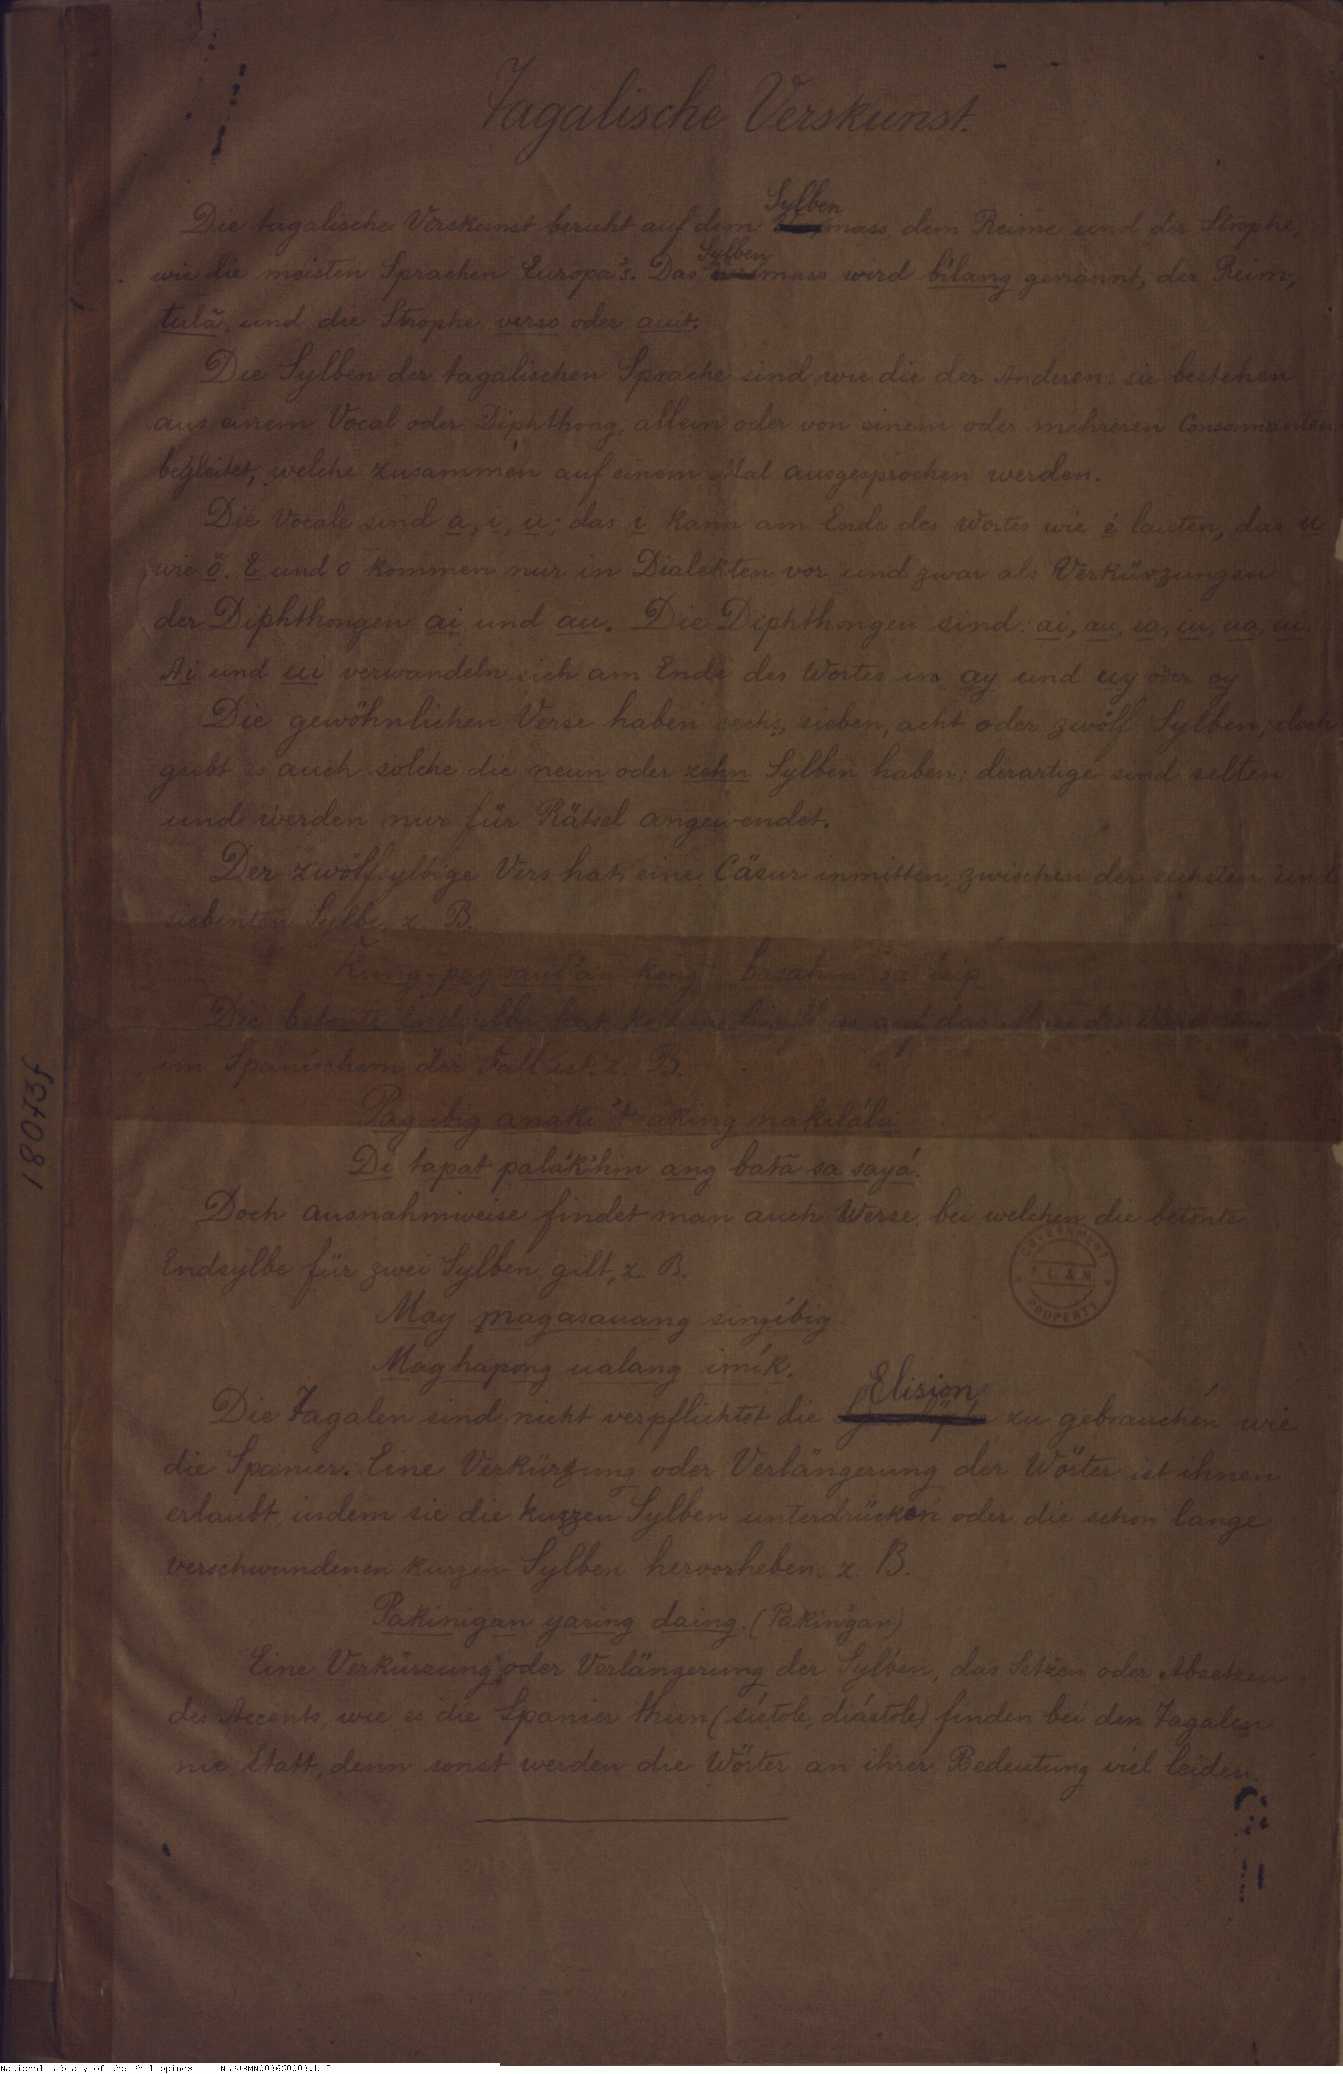 Tagalische Verskunst.
Die tagalische Verskunst beruht auf dem Sylbenmass, dem Reime und der Strophe,
wie die meisten Sprachen Europa's. Das Sylbenmass wird bilang genannt, der Reim,
tulâ, und die Strophe verso oder auit.
Die Sylben der tagalischen Sprache sind wie die der Anderen: sie bestehen
aus einem Vocal oder Diphthong, allein oder von einem oder mehreren Consonanten
begleitet, welche zusammen auf einem Mal ausgesprochen werden.
Die Vocale sind a, i, u; das i kann am Ende des Wortes wie é lauten, das u
wie ö. E und o kommen nur in Dialekten vor und zwar als Verkürzungen
der Diphthongen ai und au. Die Diphthongen sind: ai, au, ia, iu, ua, ui.
Ai und ui verwandeln sich am Ende des Wortes in ay und uy oder oy
Die gewöhnlichen Verse haben sechs, sieben, acht oder zwölf Sylben, doch
giebt es auch solche die neun oder zehn Sylben haben; derartige sind selten
und werden nur für Rätsel angewendet.
Der zwölfsylbige Vers hat eine Cäsur inmitten, zwischen der sechsten und
siebenten Sylbe, z. B.
Kung pag saulan kong basahin sa isip
Die betonte Endsylbe hat keinen Einfluss auf das
im Spanischem der Fall ist. z. B.
Pag ibig anaki 't aking nakilala
Di tapat palakihin ang batà sa sayá.
Doch ausnahmweise findet man auch Werse, bei welchen die betonte
Endsylbe für zwei Sylben gilt, z. B.
GOVERNMENT
PROPERTY
May magasauang singibig
Maghapong ualang imík.
Die Tagalen sind nicht verpflichtet die Elision zu gebrauchen wie
die Spanier. Eine Verkürzung oder Verlängerung der Wörter ist ihnen
erlaubt, indem sie die kurzen Sylben unterdrücken oder die schon lange
verschwundenen kurzen Sylben hervorheben. z. B.
Pakinigan yaring daing. (Pakin̄gan)
Eine Verkürzung oder Verlängerung der Sylben, das Setzen oder Absetzen
des Accents, wie es die Spanier thun (sístole, diástole) finden bei den Tagalen
nie Statt, denn sonst werden die Wörter an ihrer Bedeutung viel leiden.
18073f
National Library of the Philippines